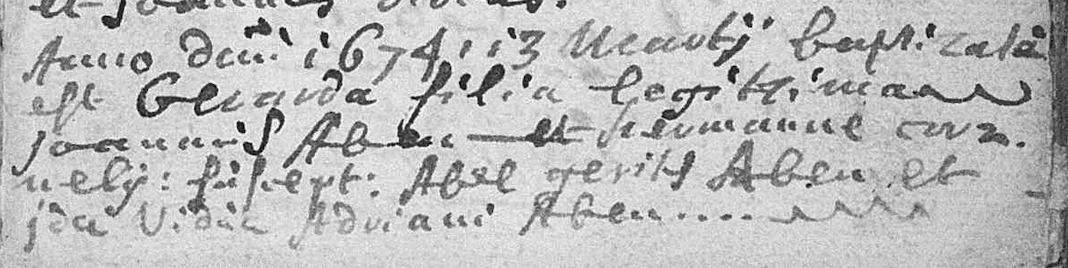 et Joannes
Anno Dnī 1674, 13 Meartij baptizata
est Gerarda filia legittima
Joannis Aben et Hermanne cor=
nelij: suscept: Abel gerits Aben et
jda Vidua Adriani Aben....